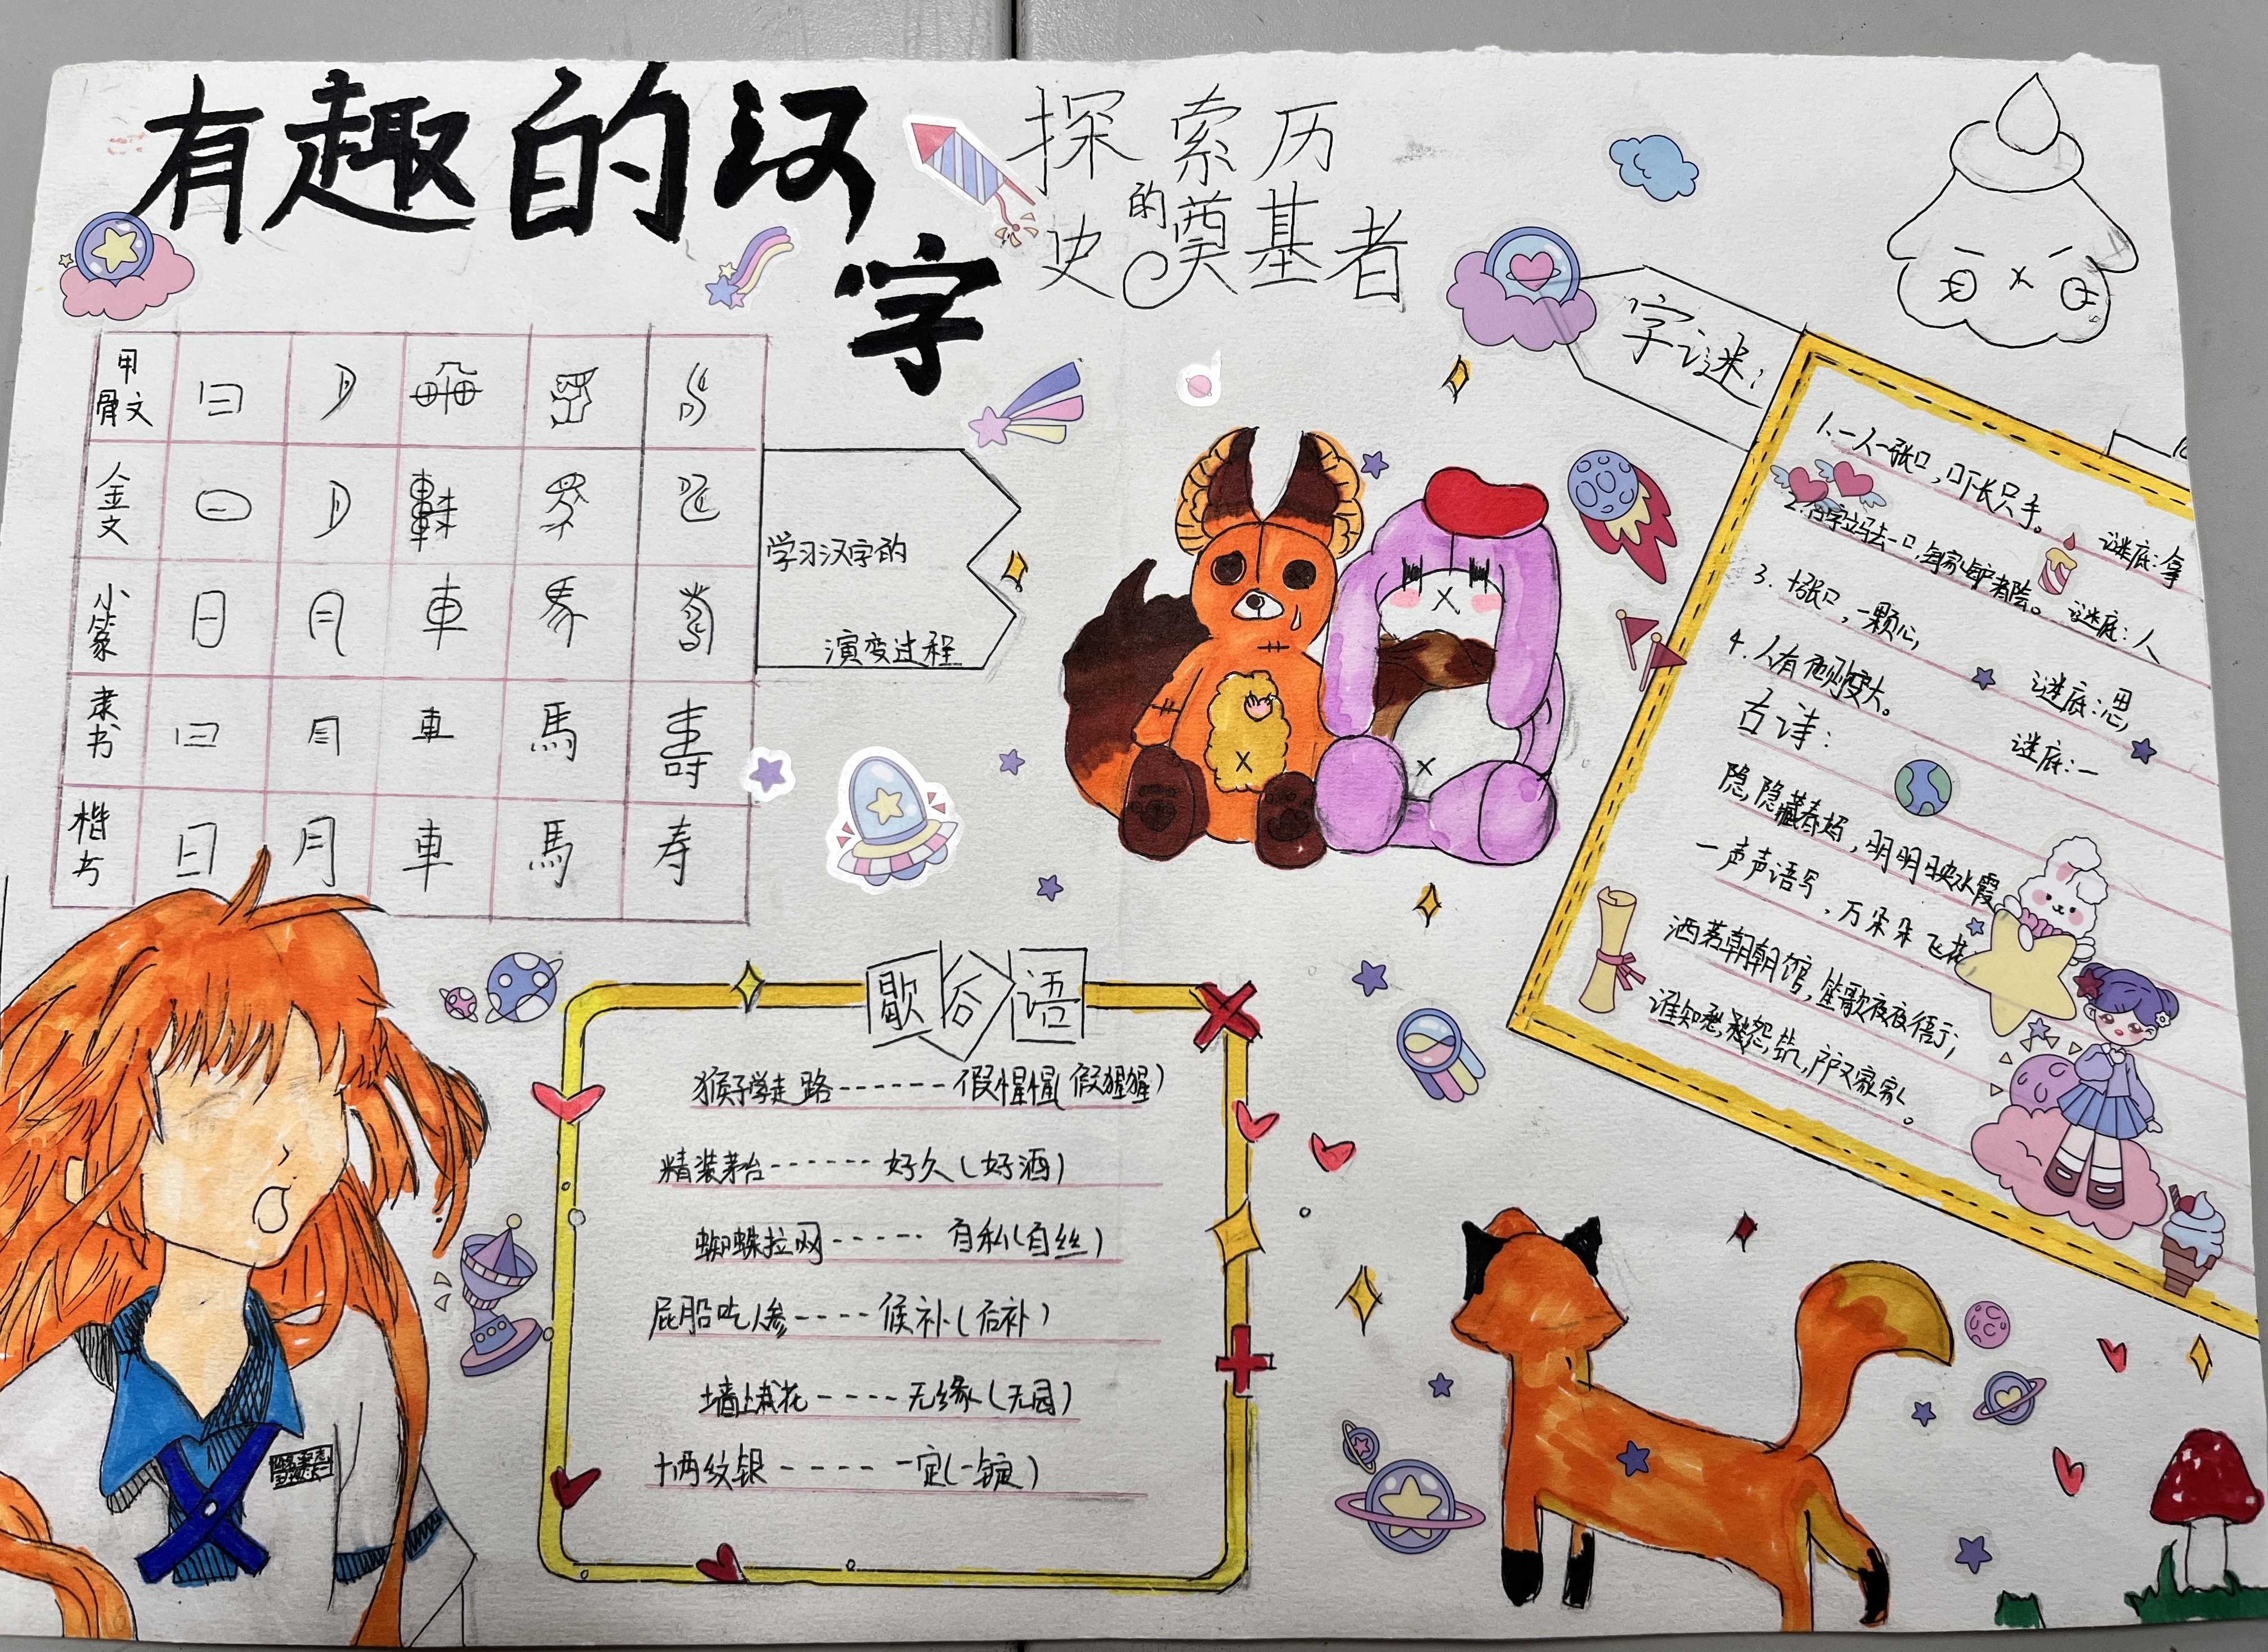 有趣的汉字
探索历
史的奠基者
甲骨文
金文
小篆 日 月 車
隶书 日 月 車 馬 壽
楷书 日 月 車 馬 寿
学习汉字的
演变过程
字谜:
1、一人一张口,口下长只手。 谜底:拿
谜底:人
3. 十张口,一颗心, 谜底:思
4. 人有他则变大。 谜底:一
古诗:
隐,隐藏春坞,明明映水霞
一声声语写,万朵朵飞花
朝朝馆,笙歌夜夜
歇后语
猴子学走路------假惺惺(假猩猩)
精装茅台------好久(好酒)
蜘蛛拉网------自私(自丝)
屁股吃人参----候补(后补)
墙上栽花----无缘(无园)
十两纹银----一定(一锭)